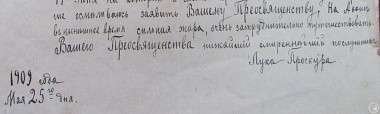 не осмѣливаюсь заявить Вашему Преосвященству, на Авонѣ
въ нынѣшнее время сильная жара, очень затруднительно путешествовать.
Вашего Преосвященства нижайшій смиреннѣйшій послушникъ
Лука Проскура
1909 года
Мая 25го дня.